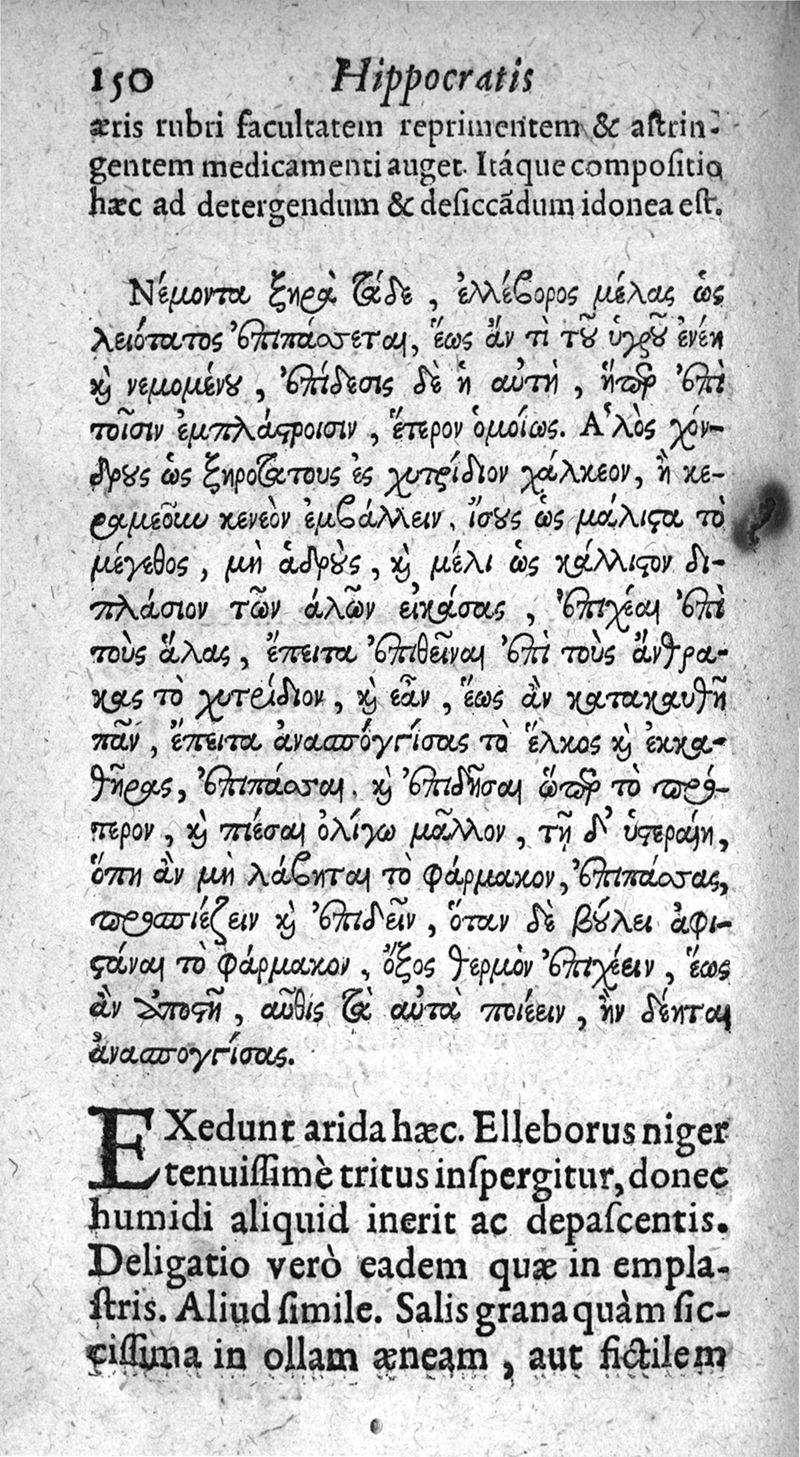 150 Hippocratis
æris rubri facultatem reprimentem & aſtrin-
gentem medicamenti auget. Itáque compoſitio
hæc ad detergendum & deſiccādum idonea eſt.
Νέμοντα ξηρὰ τάδε, ἑλλέβορος μέλας ὡς
λειότατος ἐπιπάσσεται, ἕως ἄν τὶ τοῦ ὑγροῦ ἐνέῃ
καὶ νεμομένου, ἐπίδεσις δὲ ἡ αὐτὴ, ἥπερ ἐπὶ
τοῖσιν ἐμπλάστροισιν, ἕτερον ὁμοίως. Ἁλὸς χόν-
δρους ὡς ξηροτάτους ἐς χυτρίδιον χάλκεον, ἢ κε-
ραμεοῦν κενεὸν ἐμβάλλειν, ἴσους ὡς μάλιστα τὸ
μέγεθος, μὴ ἁδροὺς, καὶ μέλι ὡς κάλλιστον δι-
πλάσιον τῶν ἁλῶν εἰκάσας, ἐπιχέαι ἐπὶ
τοὺς ἅλας, ἔπειτα ἐπιθεῖναι ἐπὶ τοὺς ἄνθρα-
κας τὸ χυτρίδιον, καὶ ἐᾶν, ἕως ἂν κατακαυθῇ
πᾶν, ἔπειτα ἀνασπογγίσας τὸ ἕλκος καὶ ἐκκα-
θήρας, ἐπιπάσαι. καὶ ἐπιδῆσαι ὥσπερ τὸ πρό-
τερον, καὶ πιέσαι ὀλίγῳ μᾶλλον, τῇ δ' ὑστεραίῃ,
ὅπη ἂν μὴ λάβηται τὸ φάρμακον, ἐπιπάσσας,
προσπιέζειν καὶ ἐπιδεῖν, ὅταν δὲ βούλει ἀφι-
στάναι τὸ φάρμακον, ὄξος θερμὸν ἐπιχέειν, ἕως
ἂν ἀποστῇ, αὖθις τὰ αὐτὰ ποιέειν, ἢν δέηται
ἀνασπογγίσας.
EXedunt arida hæc. Elleborus niger
tenuiſſimè tritus inſpergitur, donec
humidi aliquid inerit ac depaſcentis.
Deligatio verò eadem quæ in empla-
ſtris. Aliud ſimile. Salis grana quàm ſic-
ciſſima in ollam æneam, aut fictilem